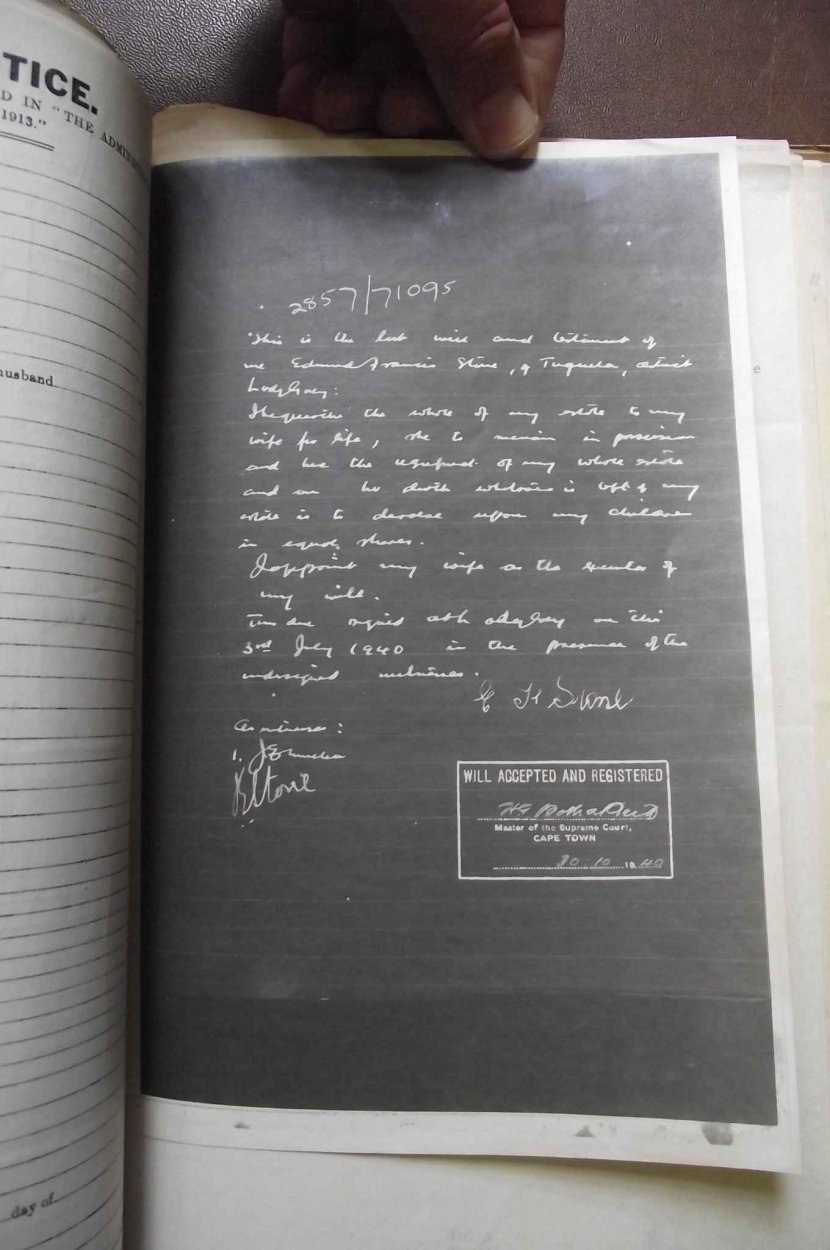 TICE.
D IN "THE ADMINIST
1913."
husband
day of
e
2857/71095
This is the last will and testament of
me Edmund Francis Stone, of Tuguela, district
Lady Grey:
I bequeath the whole of my estate to my
wife for life, she to remain in possession
and have the usufruct of my whole estate
and on her death whatever is left of my
estate is to devolve upon my children
in equal shares.
I appoint my wife as the executor of
my will.
Thus done signed at Lady Grey on this
3rd July 1940 in the presence of the
undersigned witnesses.
E F Stone
As witnesses:
1.
Stone
WILL ACCEPTED AND REGISTERED
Master of the Supreme Court,
CAPE TOWN
30-10 1940